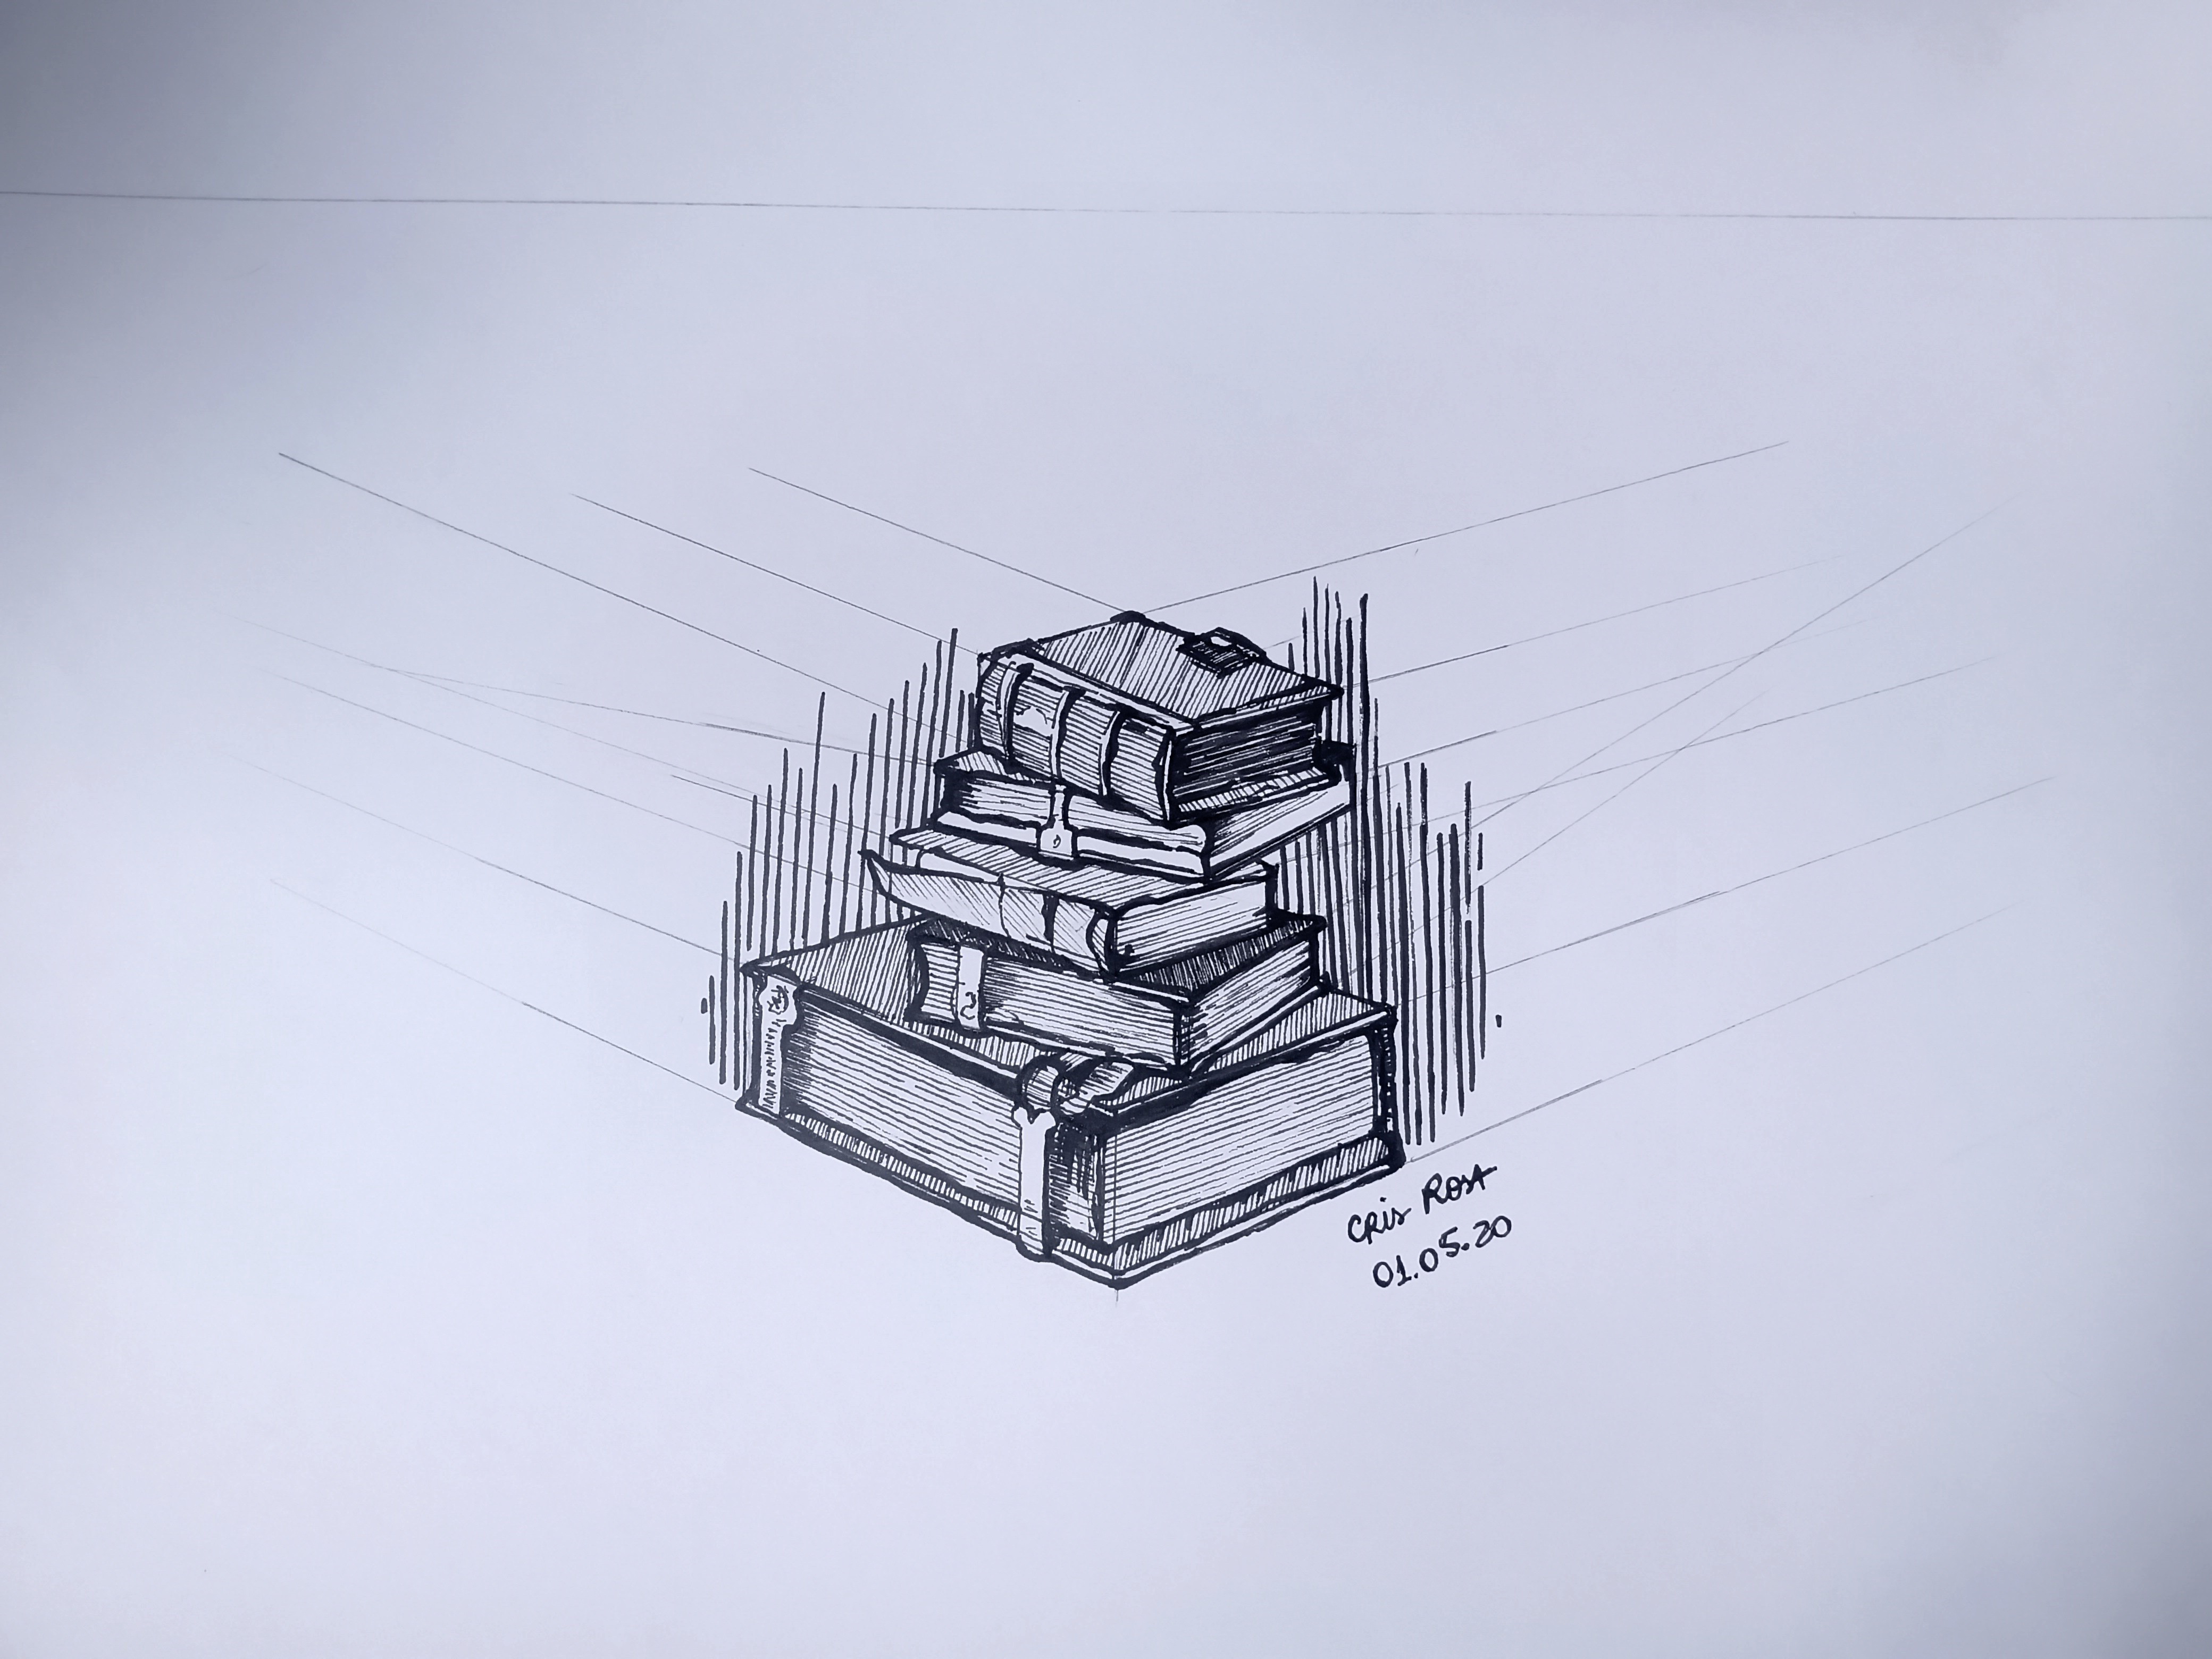 CRis ROSA
01.05.20